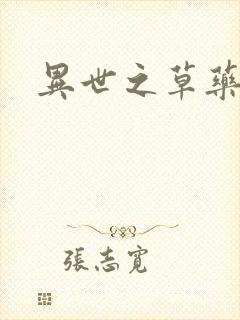 異世之草藥
張志寬